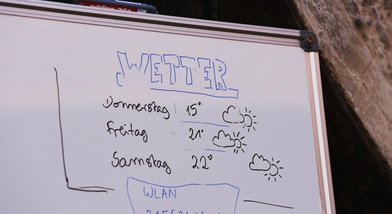 WETTER
Donnerstag 15°
Freitag 21°
Samstag 22°
WLAN